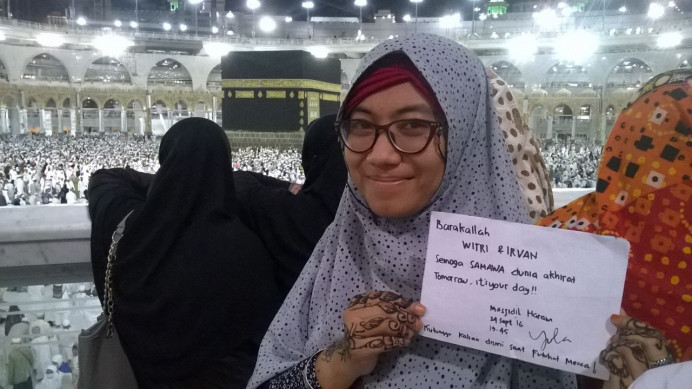 Barakallah
WITRI & IRVAN
Semoga SAMAWA dunia akhirat
Tomorrow, it's your day!!
Masjidil Haram
29 Sept 16
19.45
Kutunggu kalian disini saat Futuhat Mecca!